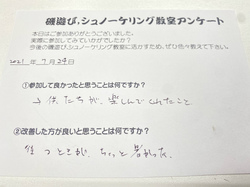 磯遊び、シュノーケリング教室アンケート
本日はご参加ありがとうございました。
実際に参加してみていかがでしたか？
今後の磯遊び、シュノーケリング教室に活かすため、ぜひ色々教えて下さい。
2021年 7月24日
①参加して良かったと思うことは何ですか？
子供たちが、楽しんでくれたこと
②改善した方が良いと思うことは何ですか？
待つときが、ちょっと暑かった。